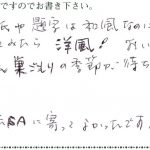 ですのでお書き下さい。
紙や題字は和風なのに
みたら洋風! おい
ん巣ごもりの季節が待ち
SAに寄ってよかったです